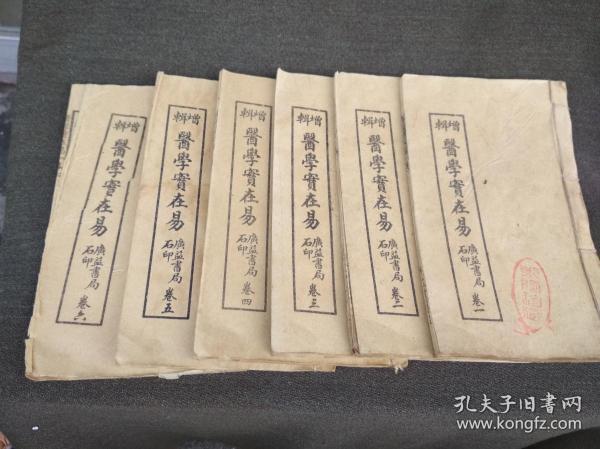 增輯
醫學實在易
廣益書局
石印
卷一
增輯
醫學實在易
廣益書局
石印
卷二
增輯
醫學實在易
廣益書局
石印
卷三
增輯
醫學實在易
廣益書局
石印
卷四
增輯
醫學實在易
廣益書局
石印
卷五
增輯
醫學實在易
廣益書局
石印
卷六
孔夫子旧书网
www.kongfz.com